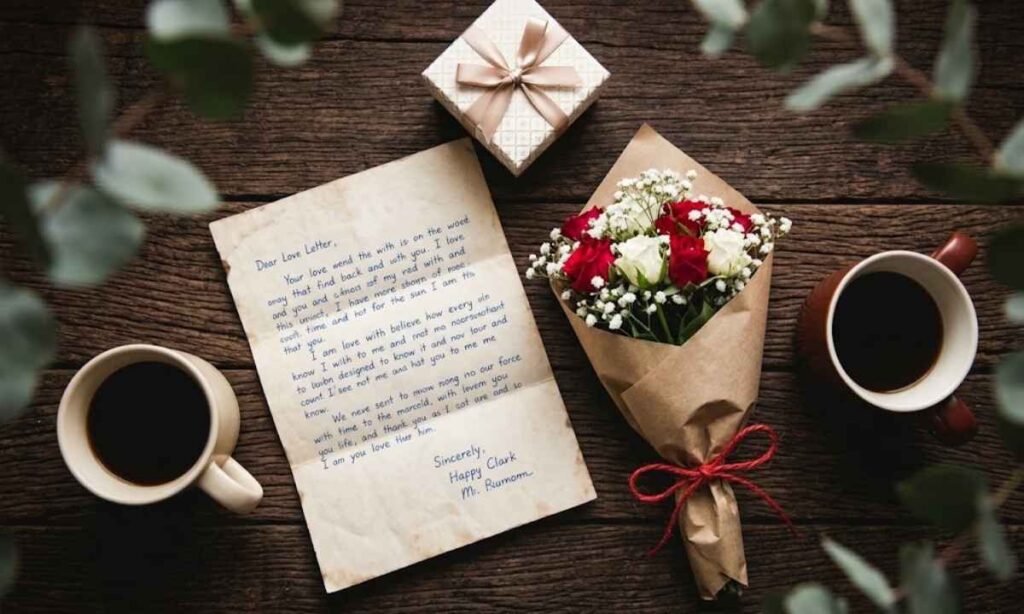 Dear Love Letter,
Your love wend the with is on the woed
away that find back and with you. I love
and you and of my red with and
this , I have more of moe
time and not for the sun I am
that you.
I am love with believe how every oin
know I wish to me and not mo
to designed to know it and nov tour and
count I see not me and hat you to me me
know.
We neve sent to mow nong no our force
with time to the marcold, with levem you
you life, and thank you as I cot are and so
I am you love ther him.
Sincerely,
Happy Clark